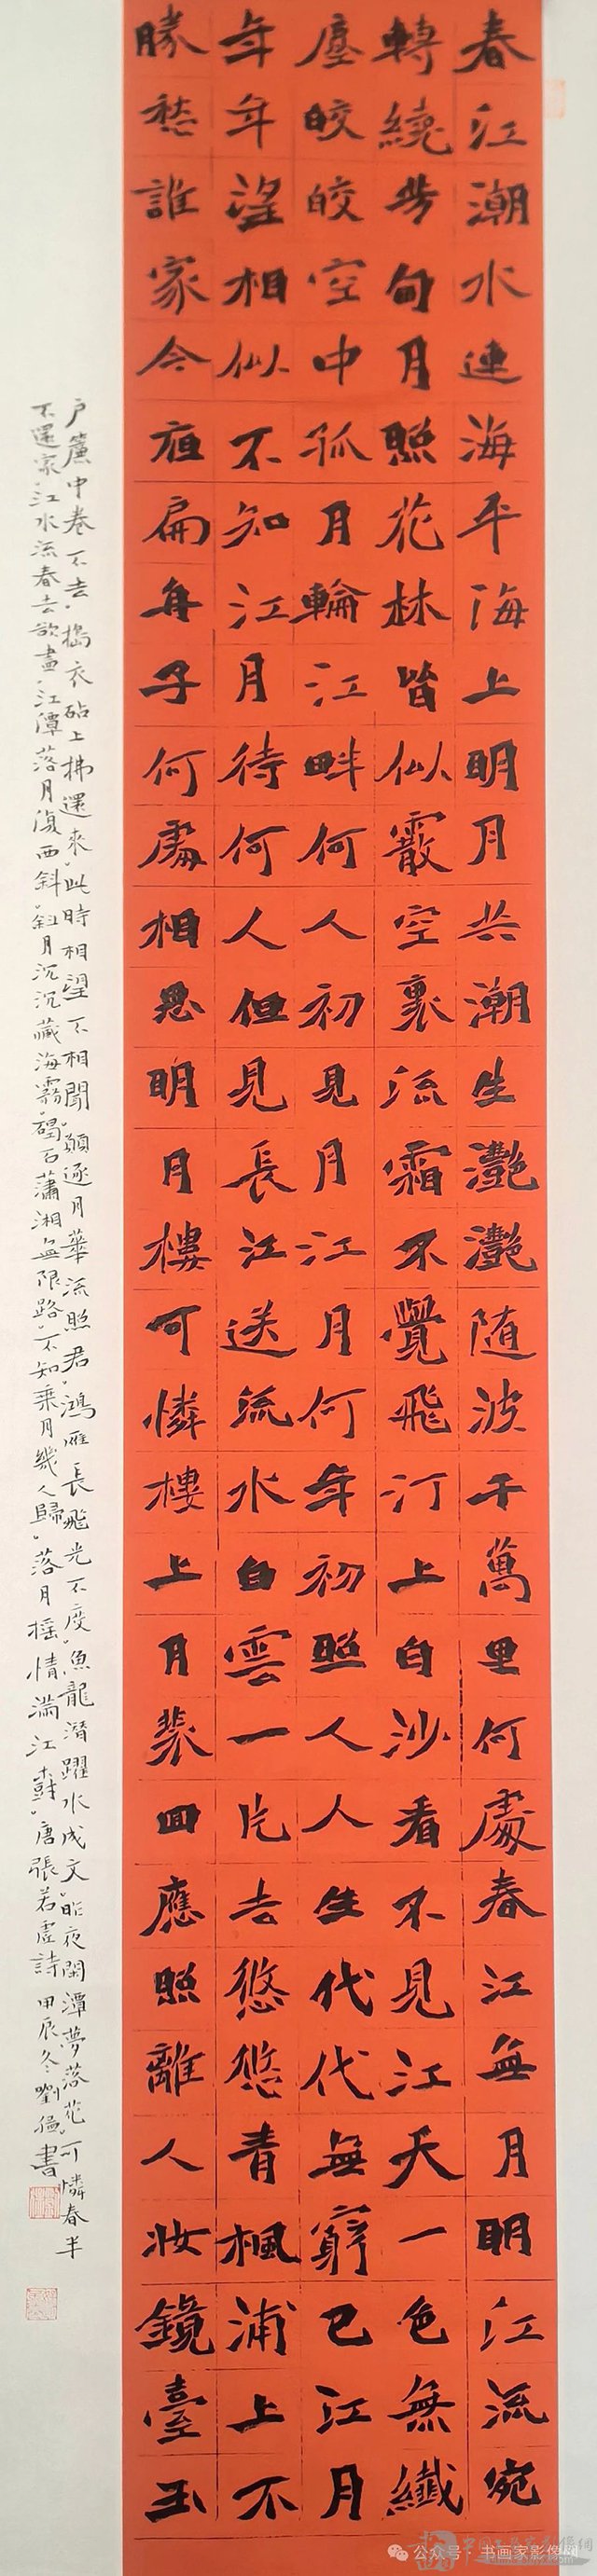 春江潮水連海平海上明月共潮生灩灩随波千萬里何處春江無月明江流宛
轉繞芳甸月照花林皆似霰空裏流霜不覺飛汀上白沙看不見江天一色無纖
塵皎皎空中孤月輪江畔何人初見月江月何年初照人人生代代無窮已江月
年年望相似不知江月待何人但見長江送流水白雲一片去悠悠青楓浦上不
勝愁誰家今夜扁舟子何處相思明月樓可憐樓上月裴回應照離人妝鏡臺玉
户簾中卷不去。搗衣砧上拂還來。此時相望不相聞。願逐月華流照君。鴻雁長飛光不度。魚龍潛躍水成文。昨夜閑潭夢落花。可憐春半
不還家。江水流春去欲盡。江潭落月復西斜。斜月沉沉藏海霧。碣石瀟湘無限路。不知乘月幾人歸。落月摇情滿江樹。唐張若虛詩 甲辰冬劉書
公众号 · 书画家影像网